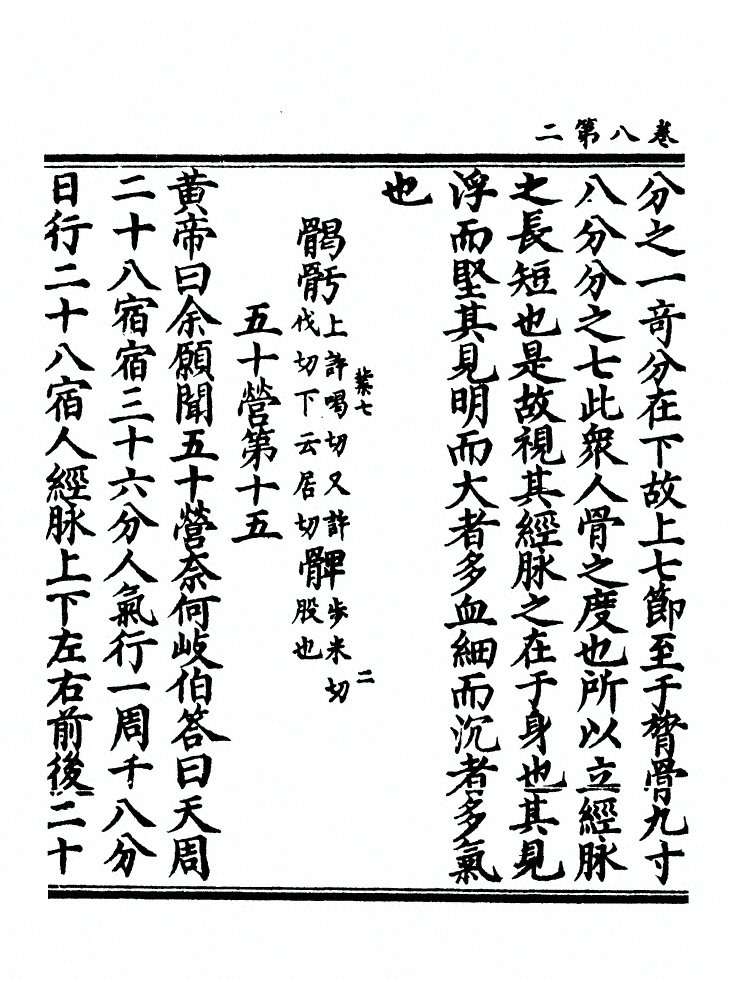 卷八第二
分之一奇分在下故上七節至于膂骨九寸
八分分之七此衆人骨之度也所以立經脉
之長短也是故視其經脉之在于身也其見
浮而堅其見明而大者多血細而沉者多氣
也
𩩲骬上許喝切又許伐切下云居切髀步米切股也
紫七
二
五十營第十五
黃帝曰余願聞五十營奈何岐伯答曰天周
二十八宿宿三十六分人氣行一周千八分
日行二十八宿人經脉上下左右前後二十